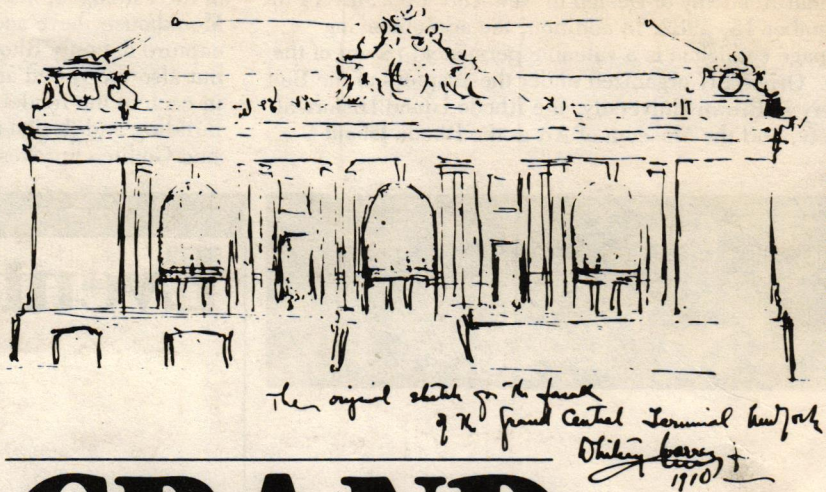 The original sketch for the facade
of the Grand Central Terminal New York
Whitney Warren
1910
GRAND